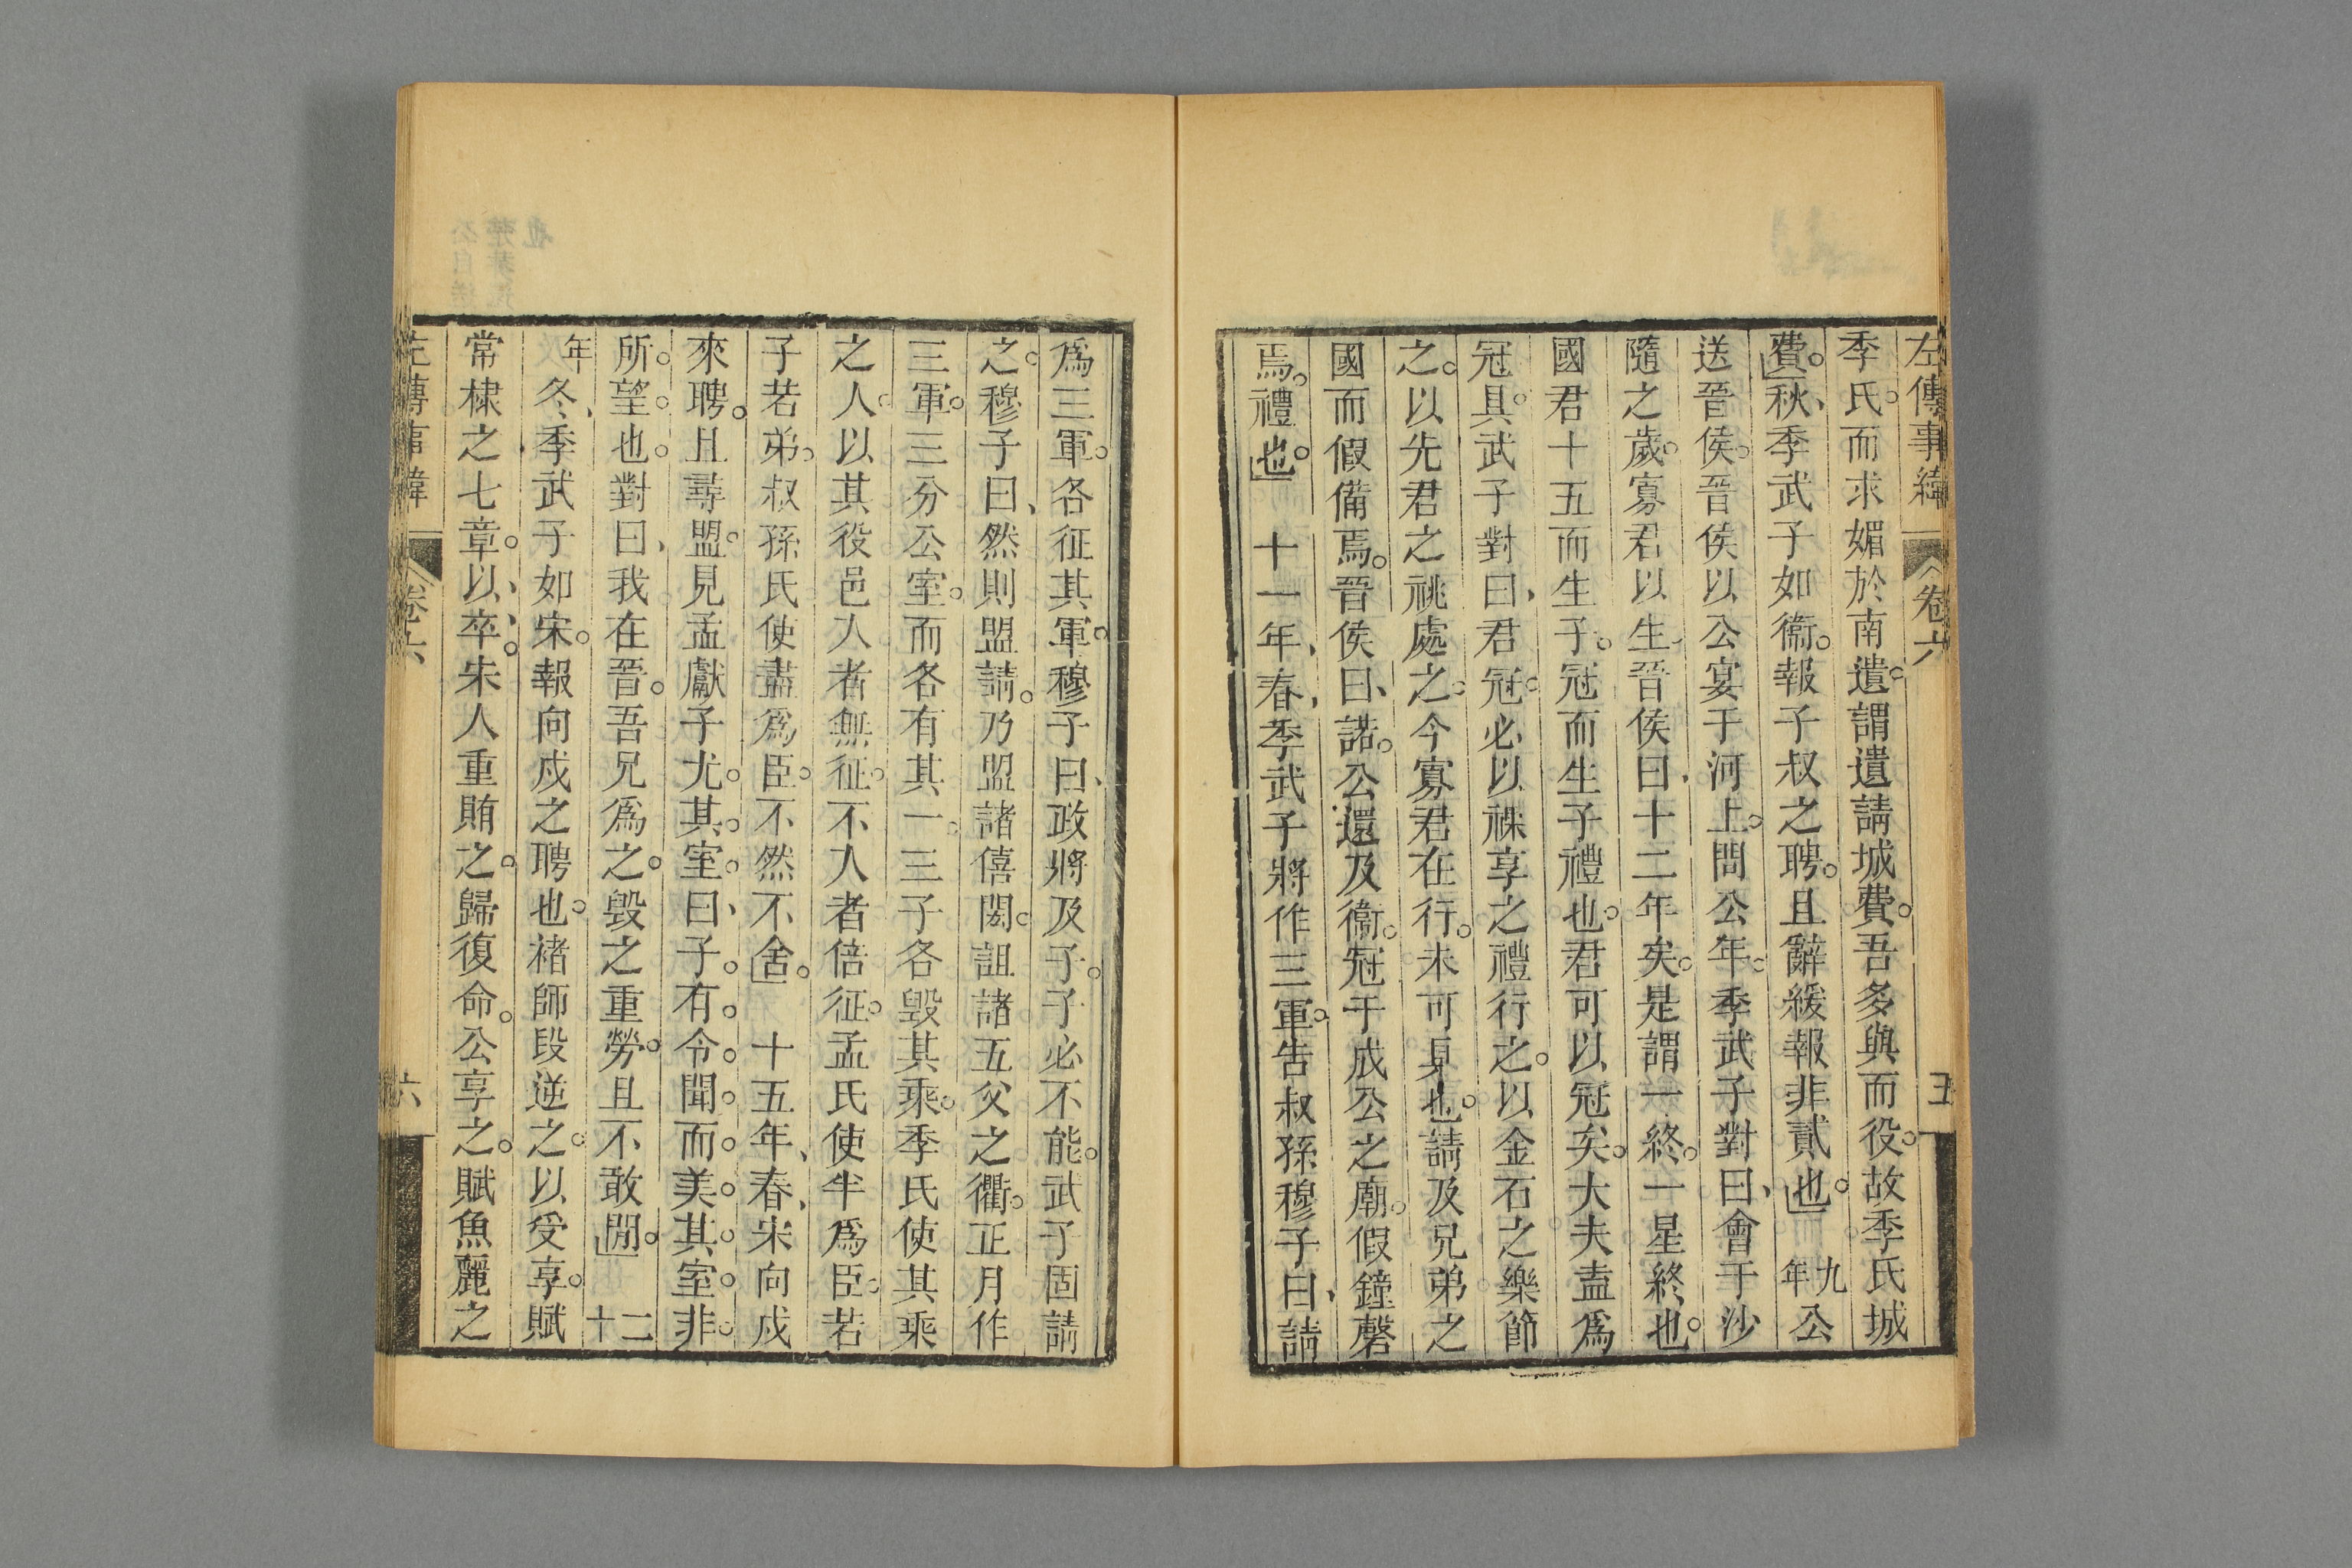 左傳事緯 卷六 五
季氏。而求媚於南遺。謂遺請城費。吾多與而役。故季氏城
費。秋、季武子如衞。報子叔之聘。且辭緩報非貳也。九年公
送晉侯。晉侯以公宴于河上。問公年。季武子對曰、會于沙
隨之歲。寡君以生、晉侯曰、十二年矣。是謂一終。一星終也。
國君十五而生子。冠而生子禮也。君可以冠矣。大夫盍爲
冠具。武子對曰、君冠。必以祼享之禮行之。以金石之樂節
之。以先君之祧處之。今寡君在行。未可具也。請及兄弟之
國而假備焉。晉侯曰、諾。公還及衞。冠于成公之廟。假鐘磬
焉。禮也。 十一年、春、季武子將作三軍。告叔孫穆子曰、請
爲三軍。各征其軍。穆子曰、政將及子。子必不能。武子固請
之。穆子曰、然則盟請。乃盟諸僖閎。詛諸五父之衢。正月作
三軍。三分公室。而各有其一。三子各毀其乘。季氏使其乘
之人。以其役邑入者無征。不入者倍征。孟氏使半爲臣。若
子若弟。叔孫氏使盡爲臣。不然不舍。 十五年、春、宋向戌
來聘。且尋盟。見孟獻子尤。其。室。曰、子。有。令。聞。而。美。其。室。非。
所。望。也。對曰、我在晉。吾兄爲之。毀之重勞。且不敢閒。二十
年冬、季武子如宋。報向戌之聘也。褚師段逆之。以受享。賦
常棣之七章。以、卒。宋人重賄之。歸復命。公享之。賦魚麗之
左傳事緯 卷六 六